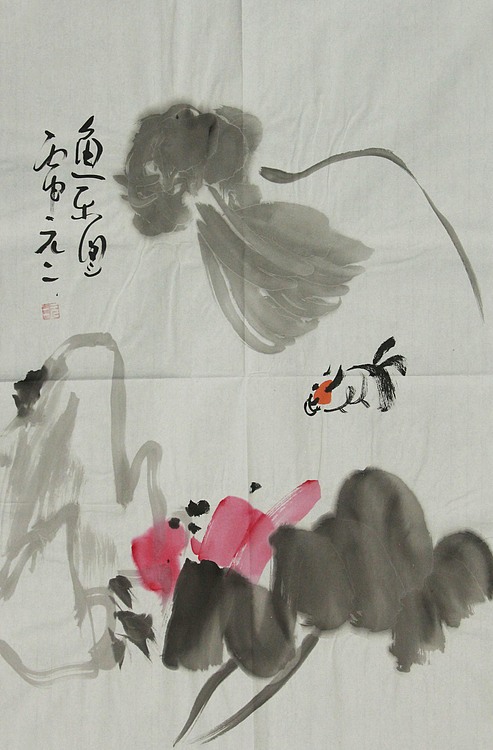 鱼乐图
丙申元二